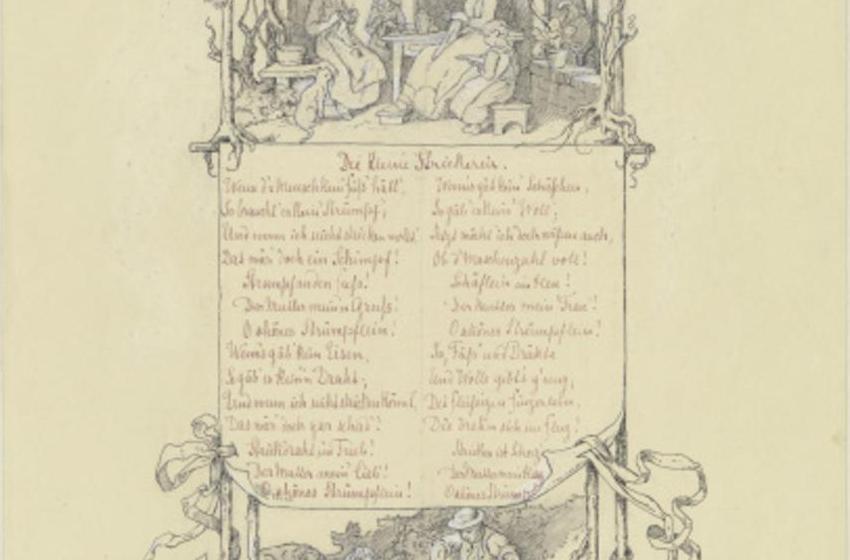 Die kleine Strickerin.
Wenn d'r Mensch kein Füß' hätt',
So braucht' er kein Strümpf';
Und wenn ich nicht stricken wollt'
Das wär' doch ein Schimpf!
Strumpf an den Fuß!
Der Mutter meinen Gruß!
O schönes Strümpflein!
Wenn's gäb' kein Eisen,
So gäb' es kein'n Draht;
Und wenn ich nicht stricken könnt',
Das wär' doch gar schad'!
Strickdraht im Trieb!
Der Mutter mein' Lieb!
O schönes Strümpflein!
Wenn's gäb' kein' Schäfchen,
So gäb' es kein' Woll';
möcht' ich doch wissen auch,
Ob d' Maschenzahl voll!
Schäflein im Klee!
Der Mutter mein' Treu!
O schönes Strümpflein!
Ja, Füß' und Drähte
Und Wolle gibt's g'nug,
Des fleißigen
Die dreh'n sich im Flug!
Stricken ist Scherz
Der Mutter mein
O schönes Strümpf